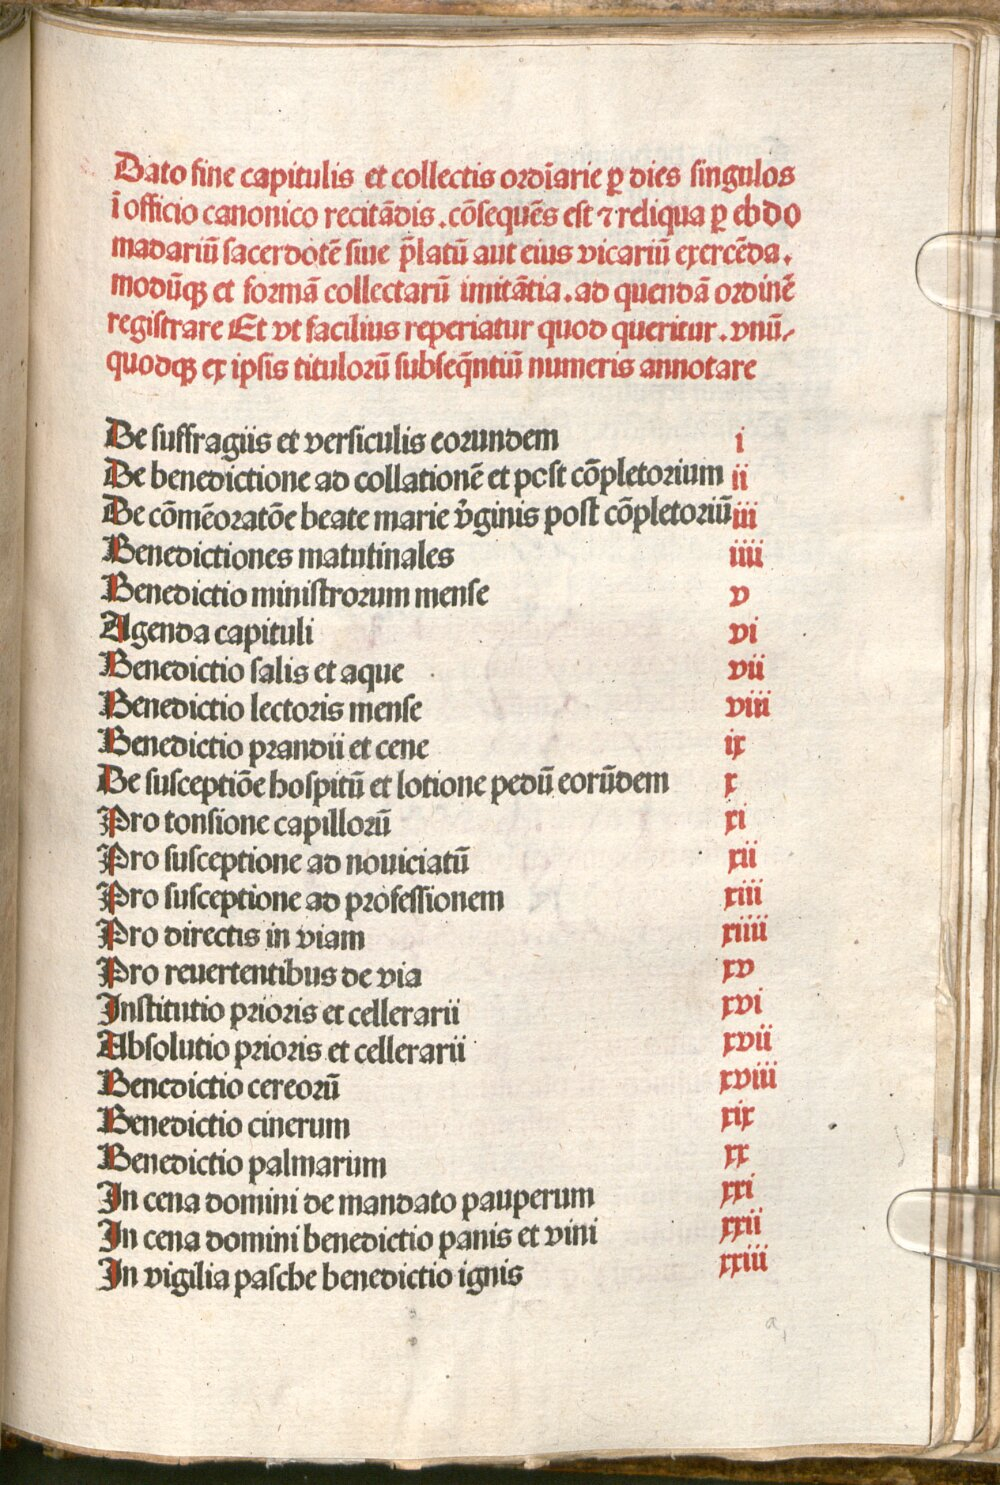 Dato fine capitulis et collectis ordīarie ꝑ dies singulos
ī officio canonico recitādis. cōsequēs est ⁊ reliqua ꝑ ebdo
madariū sacerdotē siue p̄latū aut eius vicariū exercēda.
modūqꝫ et formā collectarū imitātia. ad quendā ordinē
registrare Et vt facilius reperiatur quod queritur. vnū⸗
quodqꝫ ex ipsis titulorū subseq̄ntiū numeris annotare
De suffragiis et versiculis eorundem i
De benedictione ad collationē et post cōpletorium ii
De cōmēoratōe beate marie v̄ginis post cōpletoriū iii
Benedictiones matutinales iiii
Benedictio ministrorum mense v
Agenda capituli vi
Benedictio salis et aque vii
Benedictio lectoris mense viii
Benedictio prandii et cene ix
De susceptiōe hospitū et lotione pedū eorūdem x
Pro tonsione capillorū xi
Pro susceptione ad nouiciatū xii
Pro susceptione ad professionem xiii
Pro directis in viam xiiii
Pro reuertentibus de via xv
Institutio prioris et cellerarii xvi
Absolutio prioris et cellerarii xvii
Benedictio cereorū xviii
Benedictio cinerum xix
Benedictio palmarum xx
In cena domini de mandato pauperum xxi
In cena domini benedictio panis et vini xxii
In vigilia pasche benedictio ignis xxiii